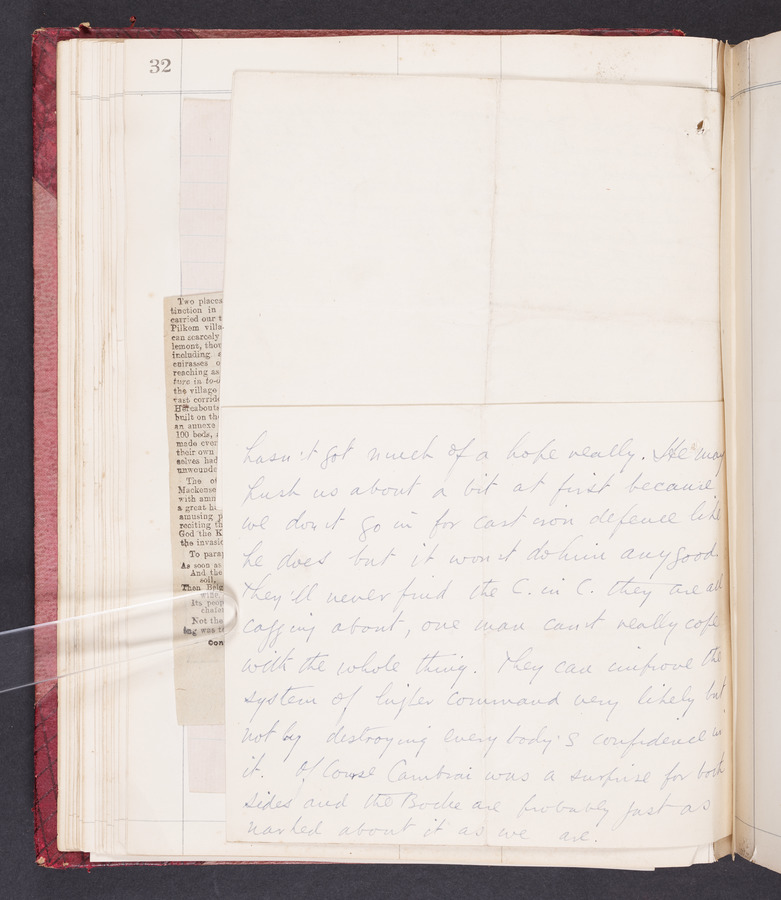 32
Two places
tinction in
carried our t
Pilkem villa
can scarcely
lemont, thou
including
cuirasses o
reaching as
ture in to-d
the village
vast corrido
Hereabouts
built on the
an annexe
100 beds,
made over
their own
selves had
unwounde
The of
Mackense
with amm
a great hi
amusing p
reciting th
God the K
the invasio
To para
As soon as
And the
soil,
Then Belg
wine,
Its peop
chafer
Not the
ing was t
Con
hasn't got much of a hope really. He may
push us about a bit at first because
we don't go in for cast iron defence like
he does but it won't do him any good.
They'll never find the C. in C. they are all
after about, one man can't really cope
with the whole thing. They can improve the
system of higher command very likely but
not by destroying everybody's confidence in
it. Of Course Cambrai was a surprise for both
sides and the Boche are probably just as
narked about it as we are.